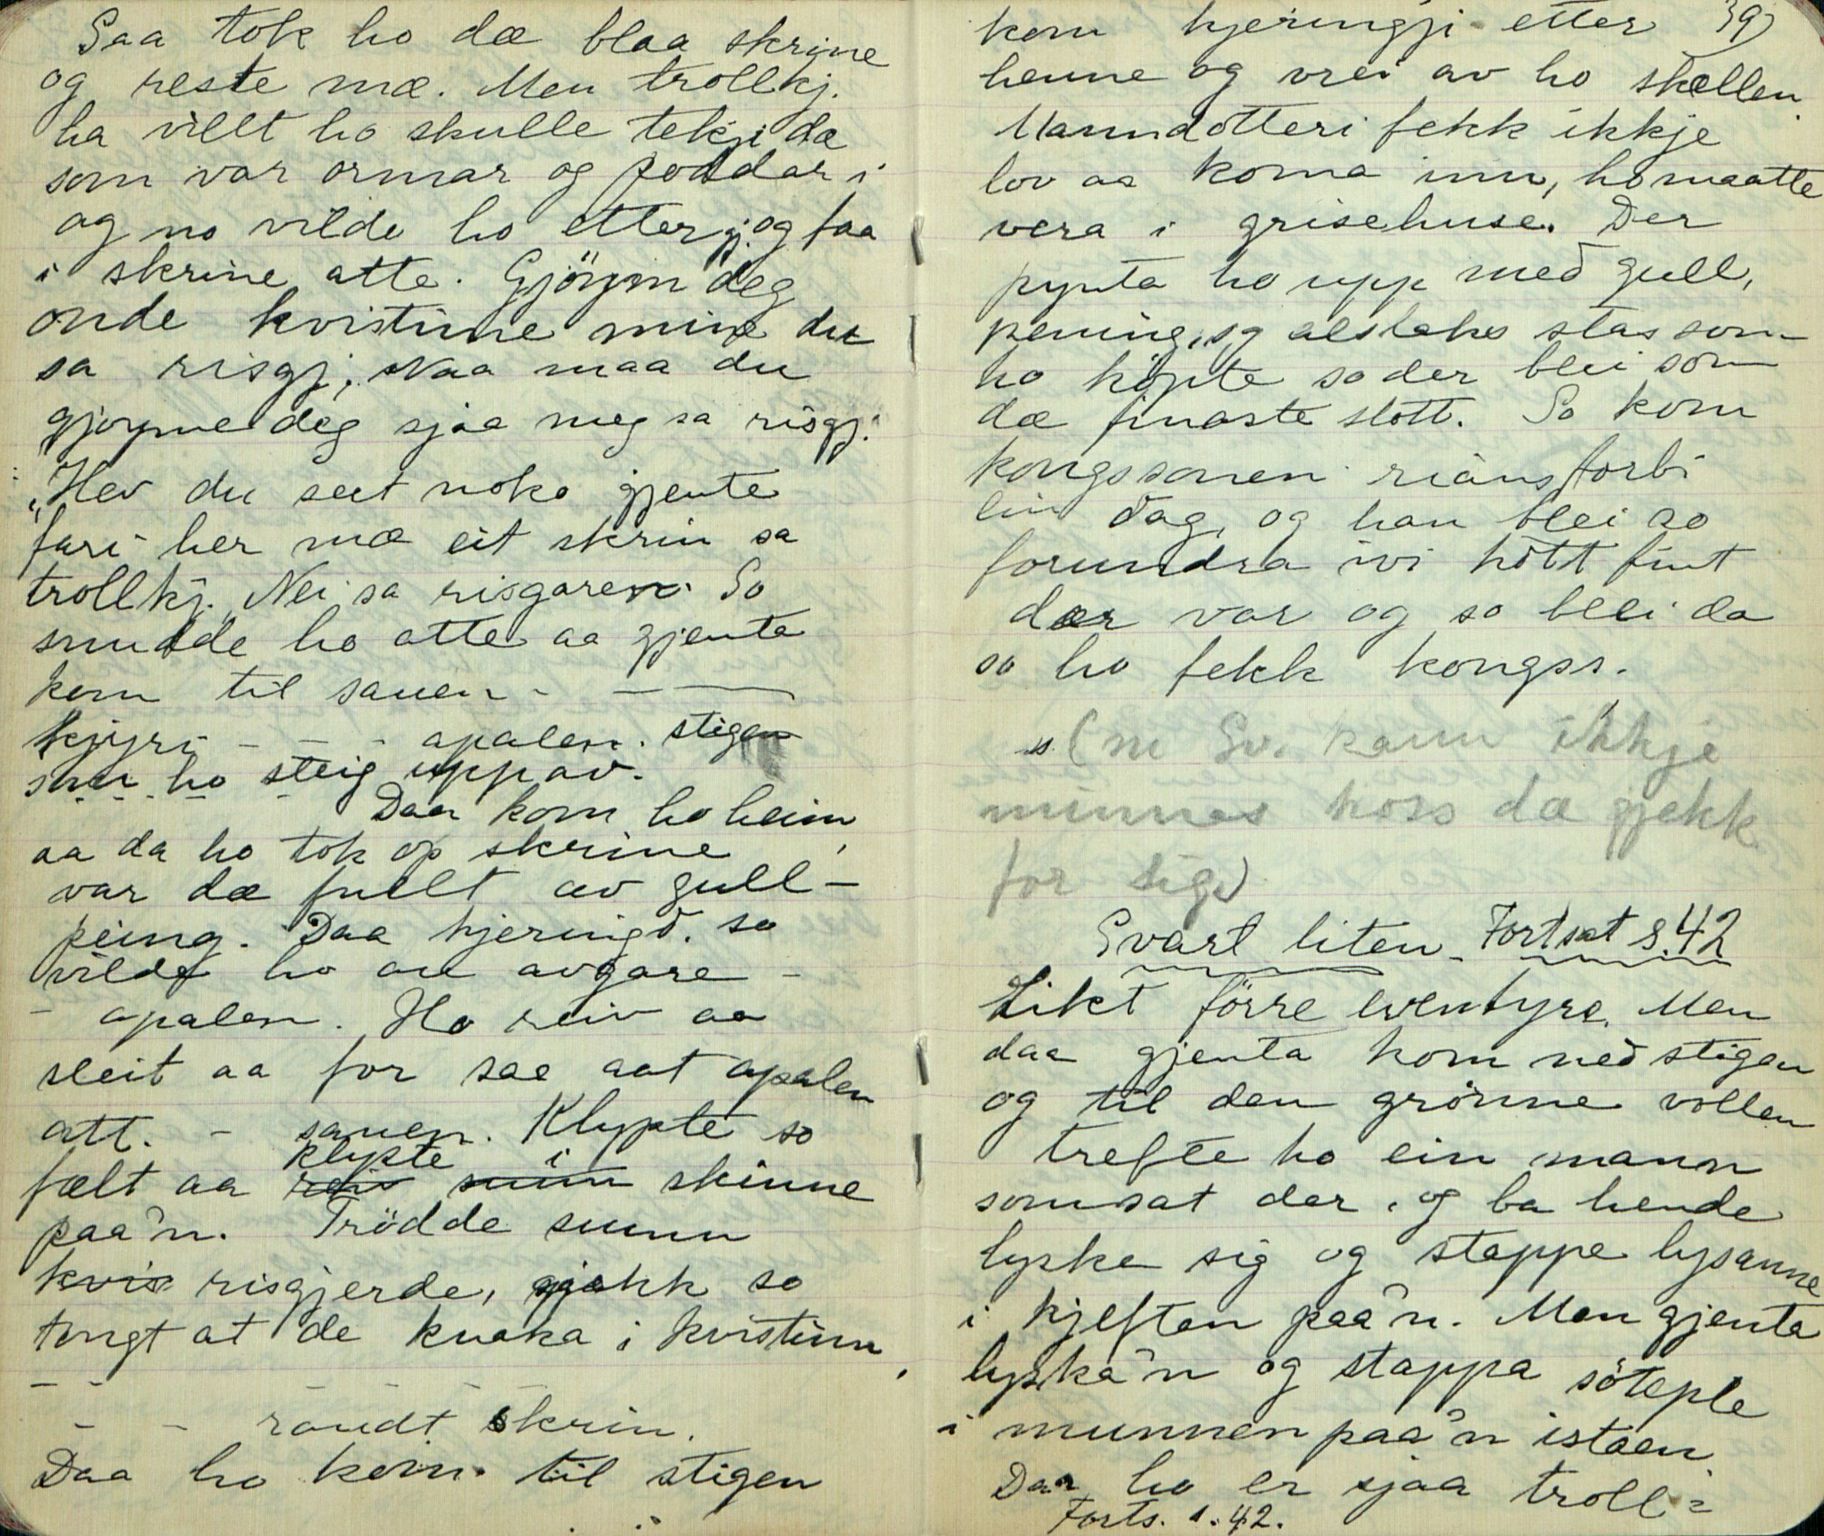 Saa tok ho dæ blaa skrine
og reste mæ. Men trollkj.
ha villt ho skulle tekji dæ
som var ormar og poddar i
og no vilde ho etter gj. og faa
i skrine atte. Gjöym deg
onde kvistine mine du
sa risgj. Naa maa du
gjøyme deg sjaa meg sa risgj.
"Hev du seet noko gjente
fari her mæ eit skrin sa
trollkj. Nei sa risgaren. So
snudde ho atte aa gjenta
kom til sauen - — —
kjyri - - - apalen. stigen
snu ho steig uppav.
Daa kom ho heim,
aa da ho tok op skrine
var dæ fullt av gull-
peing. Daa kjeringd. so
vilde ho au avgare -
- apalen. Ho reiv aa
sleit aa for sae aat apalen
att. - sauen. Klypte so
klypte i
fælt aa reiv sunn skinne
paa'n. Trödde sunn
kvis risgjerde, gjekk so
tungt at de knaka i kvistinn,
- - - - -
- - raudt skrin.
Daa ho kom til stigen
39)
kom kjeringji etter
henne og vrei av ho skællen.
Manndotteri fekk ikkje
lov aa koma inn, ho maatte
vera i grisehuse. Der
pynta ho upp med gull,
pening, og alslahs stas som
ho köpte so der blei som
dæ finaste slott. So kom
kongssonen rians forbi
ein dag, og han blei so
forundra ivi hott fint
der var og so blei da
so ho fekk kongss.
(m Sv. kann ikkje
minnes hoss dæ gjekk
for sig)
Svart liten - Fortsat s. 42
Likt förre eventyre. Men
daa gjenta kom ned stigen
og til den grönne vollen
trefte ho ein mann
som sat der, og ba hende
lyske sig og stappe lysanne
i kjeften paa'n. Men gjenta
lyska'n og stappa söteple
i munnen paa'n istaen
Daa ho er sjaa troll=
Forts. s. 42.